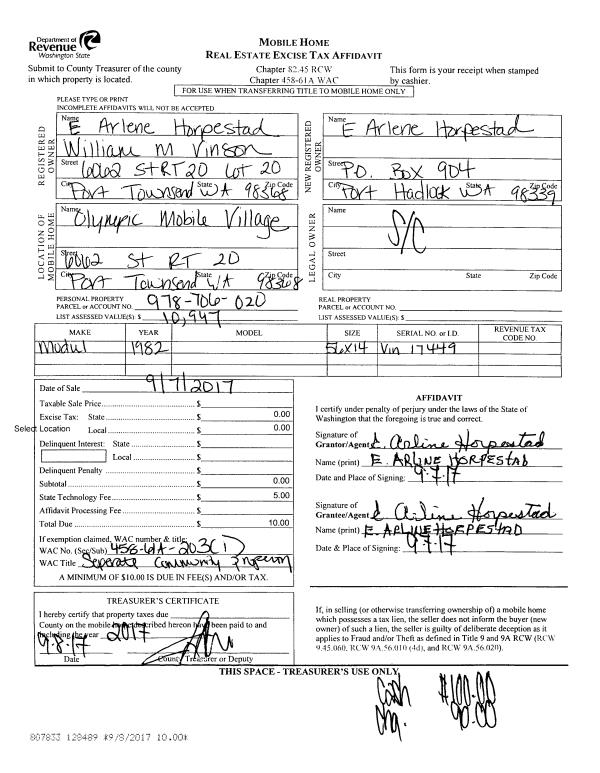 Department of
Revenue
Washington State
MOBILE HOME
REAL ESTATE EXCISE TAX AFFIDAVIT
Submit to County Treasurer of the county
in which property is located.
Chapter 82.45 RCW
Chapter 458-61A WAC
This form is your receipt when stamped
by cashier.
FOR USE WHEN TRANSFERRING TITLE TO MOBILE HOME ONLY
PLEASE TYPE OR PRINT
INCOMPLETE AFFIDAVITS WILL NOT BE ACCEPTED
REGISTERED OWNER
Name E Arlene Horpestad
William M Vinson
Street 6062 St RT 20 Lot 20
City Port Townsend State WA Zip Code 98368
NEW REGISTERED OWNER
Name E Arlene Horpestad
Street P.O. Box 904
City Port Hadlock State WA Zip Code 98339
LOCATION OF MOBILE HOME
Name Olympic Mobile Village
Street 6062 St RT 20
City Port Townsend State WA Zip Code 98368
LEGAL OWNER
Name S/C
Street
City State Zip Code
PERSONAL PROPERTY
PARCEL or ACCOUNT NO. 978-706-020
LIST ASSESSED VALUE(S): $ 10,947
REAL PROPERTY
PARCEL or ACCOUNT NO.
LIST ASSESSED VALUE(S): $
MAKE YEAR MODEL SIZE SERIAL NO. or I.D. REVENUE TAX CODE NO.
Modul 1982 56x14 Vin 17449
Date of Sale 9/7/2017
Taxable Sale Price $
Excise Tax: State $ 0.00
Select Location Local $ 0.00
Delinquent Interest: State $
Local $
Delinquent Penalty $
Subtotal $ 0.00
State Technology Fee $ 5.00
Affidavit Processing Fee $
Total Due $ 10.00
If exemption claimed, WAC number & title:
WAC No. (Sec/Sub) 458-61A-203(1)
WAC Title Seperate Community
A MINIMUM OF $10.00 IS DUE IN FEE(S) AND/OR TAX.
AFFIDAVIT
I certify under penalty of perjury under the laws of the State of
Washington that the foregoing is true and correct.
Signature of
Grantor/Agent E. Arline Horpestad
Name (print) E. ARLINE HORPESTAD
Date and Place of Signing: 9-7-17
Signature of
Grantee/Agent E Arline Horpestad
Name (print) E. ARLINE HORPESTAD
Date & Place of Signing: 9-7-17
TREASURER'S CERTIFICATE
I hereby certify that property taxes due
County on the mobile home described hereon have been paid to and
including the year 2017
9-8-17
Date County Treasurer or Deputy
If, in selling (or otherwise transferring ownership of) a mobile home
which possesses a tax lien, the seller does not inform the buyer (new
owner) of such a lien, the seller is guilty of deliberate deception as it
applies to Fraud and/or Theft as defined in Title 9 and 9A RCW (RCW
9.45.060, RCW 9A.56.010 (4d), and RCW 9A.56.020).
THIS SPACE - TREASURER'S USE ONLY
Cash $100.00
chg. 90.00
807833 128489 *9/8/2017 10.00*